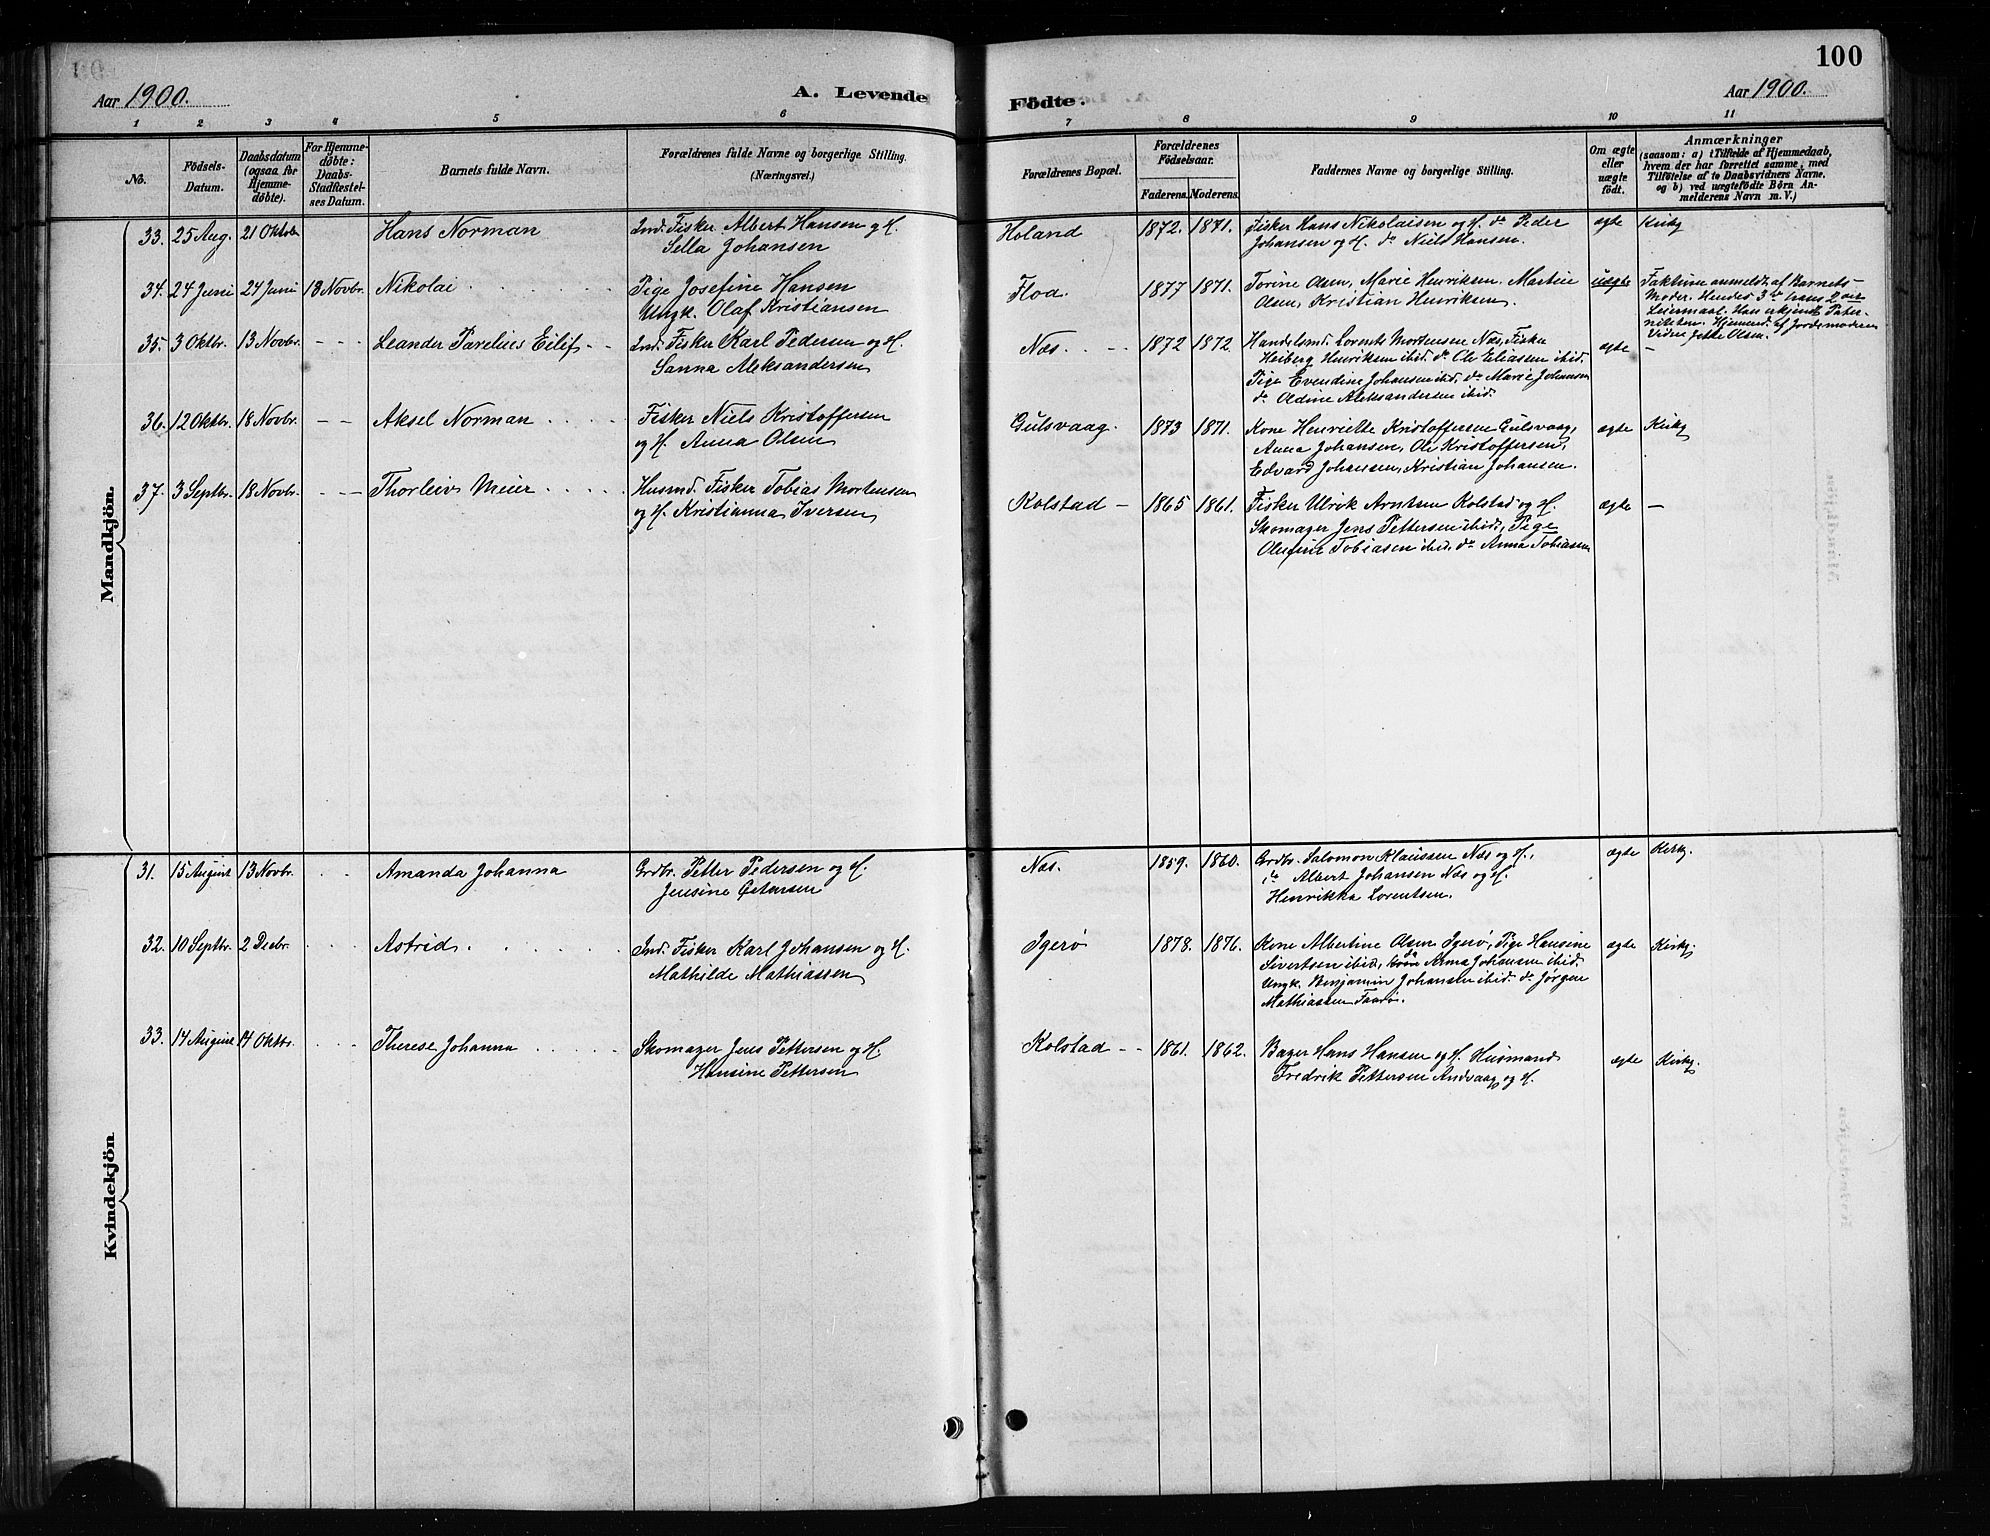 100
Aar 1900.
A. Levende Födte.
Aar 1900.
1 2 3 4 5 6 7 8 9 10 11
No.
Födsels-Datum.
Daabsdatum (ogsaa for Hjemmedöbte).
For Hjemmedöbte: Daabs-Stadfæstelses Datum.
Barnets fulde Navn.
Forældrenes fulde Navne og borgerlige Stilling. (Næringsvei.)
Forældrenes Bopæl.
Forældrenes Födselsaar.
Faderens. Moderens.
Faddernes Navne og borgerlige Stilling.
Om ægte eller uægte födt.
Anmærkninger
(saasom: a) i Tilfælde af Hjemmedaab, hvem der har forrettet samme, med Tilföielse af to Daabsvidners Navne, og b) ved uægtefödte Börn Anmelderens Navn m. V.)
Mandkjön.
33. 25 Aug. 21 Oktbr Hans Norman Ind. Fisker Albert Hansen og H.
Sella Johansen
Holand 1872. 1871. Fisker Hans Nikolaisen og H. do Peder
Johansen og H. do Niels Hansen.
ægte Kirkg
34. 24 Juni 24 Juni 18 Novbr. Nikolai Pige Josefine Hansen
Ungk. Olaf Kristiansen
Floa. 1877 1871. Torine Olsen, Marie Henriksen, Martin
Olsen, Kristian Henriksen.
uægte
anmeldt af Barnets
Moder. Hendes 3de hans 2det
Leiermaal. Han erkjent Pater-
niteten. Hjemmed. af Jordemoderen
Olsen.
35. 3 Oktbr. 13 Novbr. - - - Leander Parelius Eilif - - Ind. Fisker Karl Pedersen og H.
Sanna Aleksandersen
Næs. 1872 1872. Handelsmd. Lorents Mortensen Næs, Fisker
Heiberg Henriksen ibid. do Ole Eliasen ibid.
Pige Evendine Johansen ibid. do Marie Johansen
do Oldine Aleksandersen ibid.
ægte -
36. 12 Oktbr. 18 Novbr. - - Aksel Norman Fisker Niels Kristoffersen
og H. Anna Olsen
Gulsvaag. 1873 1871. Kone Henriette Kristoffersen Gulsvaag,
Anna Johansen, Ole Kristoffersen,
Edvard Johansen, Kristian Johansen.
ægte Kirkg
37. 3 Septbr. 18 Novbr. - - - Thorleiv Meier Husmd. Fisker Tobias Mortensen
og H. Kristianna Iversen
Kolstad - 1865 1861. Fisker Ulrik Arntsen Kolstad og H.
Skomager Jens Pettersen ibid., Pige
Olufine Tobiasen ibid. do Anna Tobiasen
ægte -
Kvindekjön
31. 15 August 13 Novbr. Amanda Johanna Grdbr. Petter Pedersen og H.
Jensine Petersen
Næs. 1859. 1860. Grdbr. Salomon Klaussen Næs og H.,
do Albert Johansen Næs og H.
Henrikka Lorentsen.
ægte Kirkg.
32. 10 Septbr. 2 Decbr. Astrid Ind. Fisker Karl Johansen og H.
Mathilde Mathiassen
Igerø 1878. 1876. Kone Albertine Olsen Igerø, Pige Hansine
Sivertsen ibid., do Anna Johansen ibid.
Ungk. Benjamin Johansen ibid. do Jørgen
Mathiassen
ægte Kirkg.
33. 14 August 14 Oktbr. Therese Johanna Skomager Jens Pettersen og H.
Hansine Pettersen
Kolstad - - 1861. 1862. Bager Hans Hansen og H. Husmand
Fredrik Pettersen Andvaag og H.
ægte Kirkg.